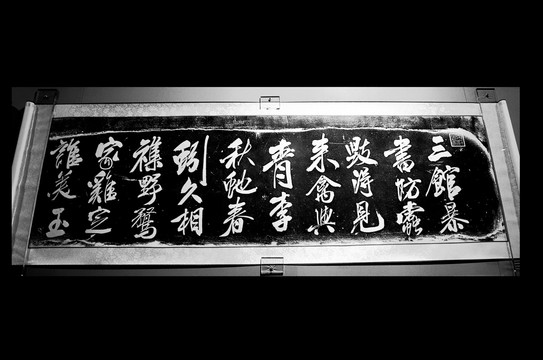 三館暴
書防蠹
毀得見
來禽與
青李
秋虵春
蚓久相
襍野鶩
家雞定
誰美玉